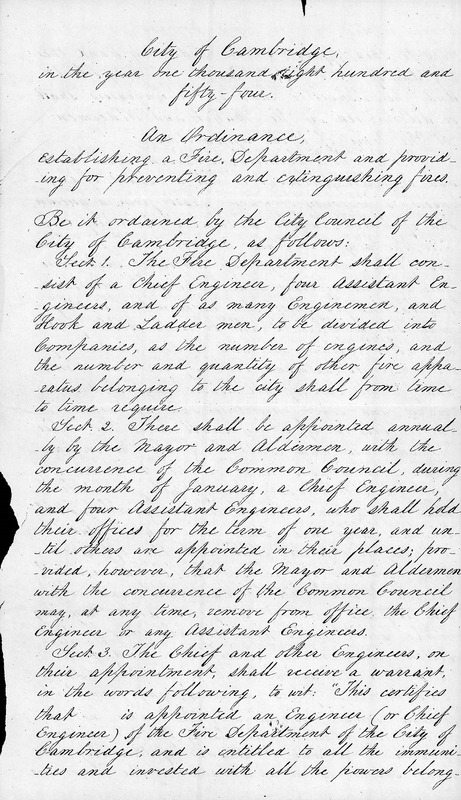 City of Cambridge,
in the year one thousand eight hundred and
fifty-four.
An Ordinance,
establishing a Fire Department and provid-
-ing for preventing and extinguishing fires.
Be it ordained by the City Council of the
City of Cambridge, as follows:
Sect. 1. The Fire Department shall con-
sist of a Chief Engineer, four Assistant En-
gineers, and of as many Enginemen, and
Hook and Ladder men, to be divided into
Companies, as the number of engines, and
the number and quantity of other fire appa-
ratus belonging to the city shall from time
to time require.
Sect. 2. There shall be appointed annual-
-ly by the Mayor and Aldermen, with the
concurrence of the Common Council, during
the month of January, a Chief Engineer,
and four Assistant Engineers, who shall hold
their offices for the term of one year, and un-
-til others are appointed in their places; pro-
-vided, however, that the Mayor and Aldermen
with the concurrence of the Common Council
may, at any time, remove from office, the Chief
Engineer or any Assistant Engineers.
Sect. 3. The Chief and other Engineers, on
their appointment, shall receive a warrant,
in the words following, to wit: "This certifies
that is appointed an Engineer (or Chief
Engineer) of the Fire Department of the City of
Cambridge, and is entitled to all the immuni-
-ties and invested with all the powers belong-